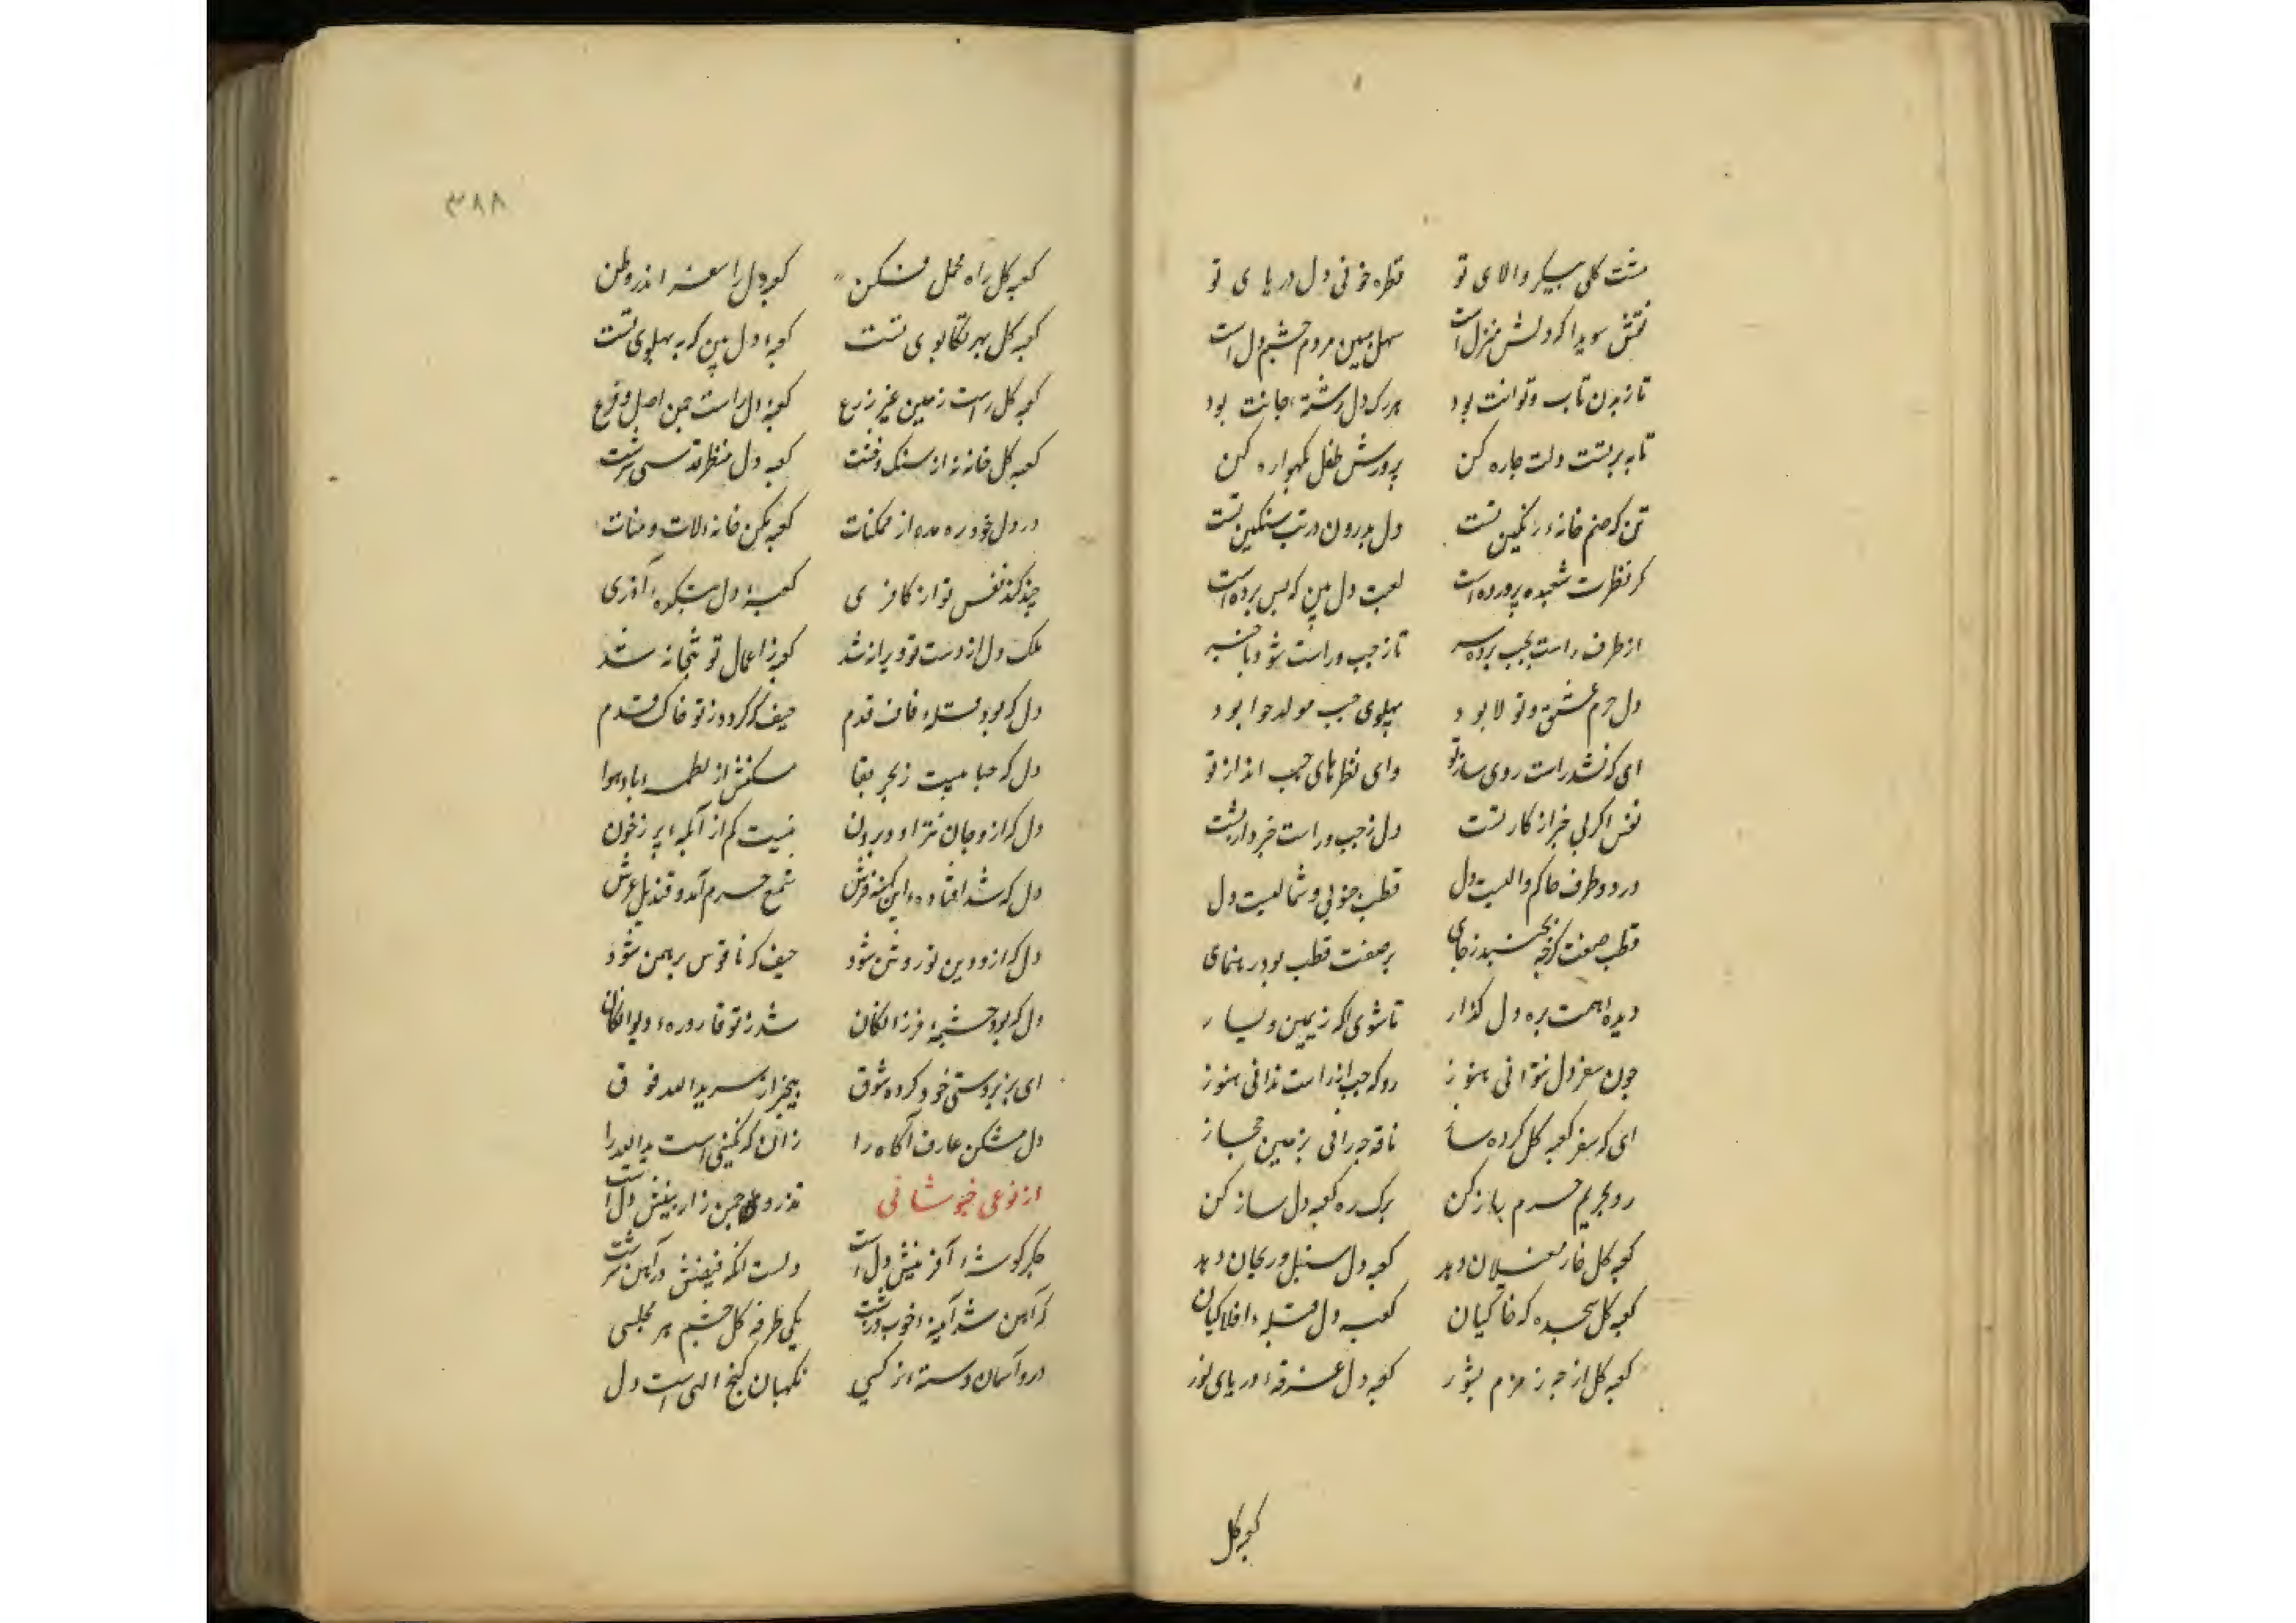 مشت کلی پیکر والای تو قطره خونی دل دریای تو
نقش سویدا که دلش منزل است سهل مبین مردم چشم دل است
تا ز بدن تاب و توانت بود هر رک دل رشته جانت بود
تا به برتست دلت چاره کن پرورش طفل بکهواره کن
تن که صنم خانه رنکین تست دل بدرون در بت سنکین تست
کر نظرت شعبده پرورده است لعبت دل بین که پس پرده است
از طرف راست بچپ برده سر تا ز چپ و راست شود باخبر
دل حرم عشق و تولا بود پهلوی چپ مولد حوا بود
ای که نشد راست روی ساز تو وای نظرهای چپ انداز تو
نفس اگر بی خبر از کار تست دل ز چپ و راست خبردار تست
در دو طرف حاکم و والیست دل قطب جنوبی و شمالیست دل
قطب صفت کرچه نجنبد ز جای بر صفت قطب بود رهنمای
دیده همت بره دل کذار تا شوی اکه ز یمین و یسار
چون سفر دل نتوانی هنوز رو که چپ از راست ندانی هنوز
ای که سفر کعبه کل کرده ساز ناقه چرانی بزمین حجاز
رو بحریم حرم باز کن برک ره کعبه دل ساز کن
کعبه کل خار مغیلان دهد کعبه دل سنبل و ریحان دهد
کعبه کل سجده که خاکیان کعبه دل قبله افلاکیان
کعبه کل از چه زمزم بشور کعبه دل غرقه دریای نور
کعبه کل
۳۸۸
کعبه کل راه محمل فکن کعبه دل را سفر اندر وطن
کعبه کل بهر تکاپوی تست کعبه دل بین که به پهلوی تست
کعبه کل راست زمین غیر زرع کعبه دل راست چمن اصل و فرع
کعبه کل خانه از سنک و خشت کعبه دل منظر قدسی سرشت
در دل خود ره مده از ممکنات کعبه مکن خانه لات و منات
چند کند نفس تو از کافری کعبه دل بتکده آذری
ملک دل از دست تو ویرانه شد کعبه ز اعمال تو بتخانه شد
دل که بود قبله قدم حیف که کردد ز تو خاک قدم
دل که حبابیست ز بحر بقا مسکنش از لطمه باد هوا
دل که ازو جان نتراود برون نیست کم از آبله پر ز خون
دل که شد افتاده این کهنه فرش شمع حرم آمد و قندیل عرش
دل که ازو دین تو روشن شود حیف که ناقوس برهمن شود
دل که بود چشمه فرزانکان شد ز تو قاروره دیوانکان
ای بزبردستی خود کرده شوق بیخبر از سر ید الله فوق
دل مشکن عارف آکاه را زان که نکینی است ید الله را
از نوعی خبوشانی تذرو چمن زار بینش دل است
جکر کوشه آفرینش دل است دلست انکه فیضش در آهن سرشت
که آهن شد آیینه خوب و زشت یکی طرفه کل چشم هر مجلسی
درو آسمان دسته نرکسی نکهبان کنج الهی است دل